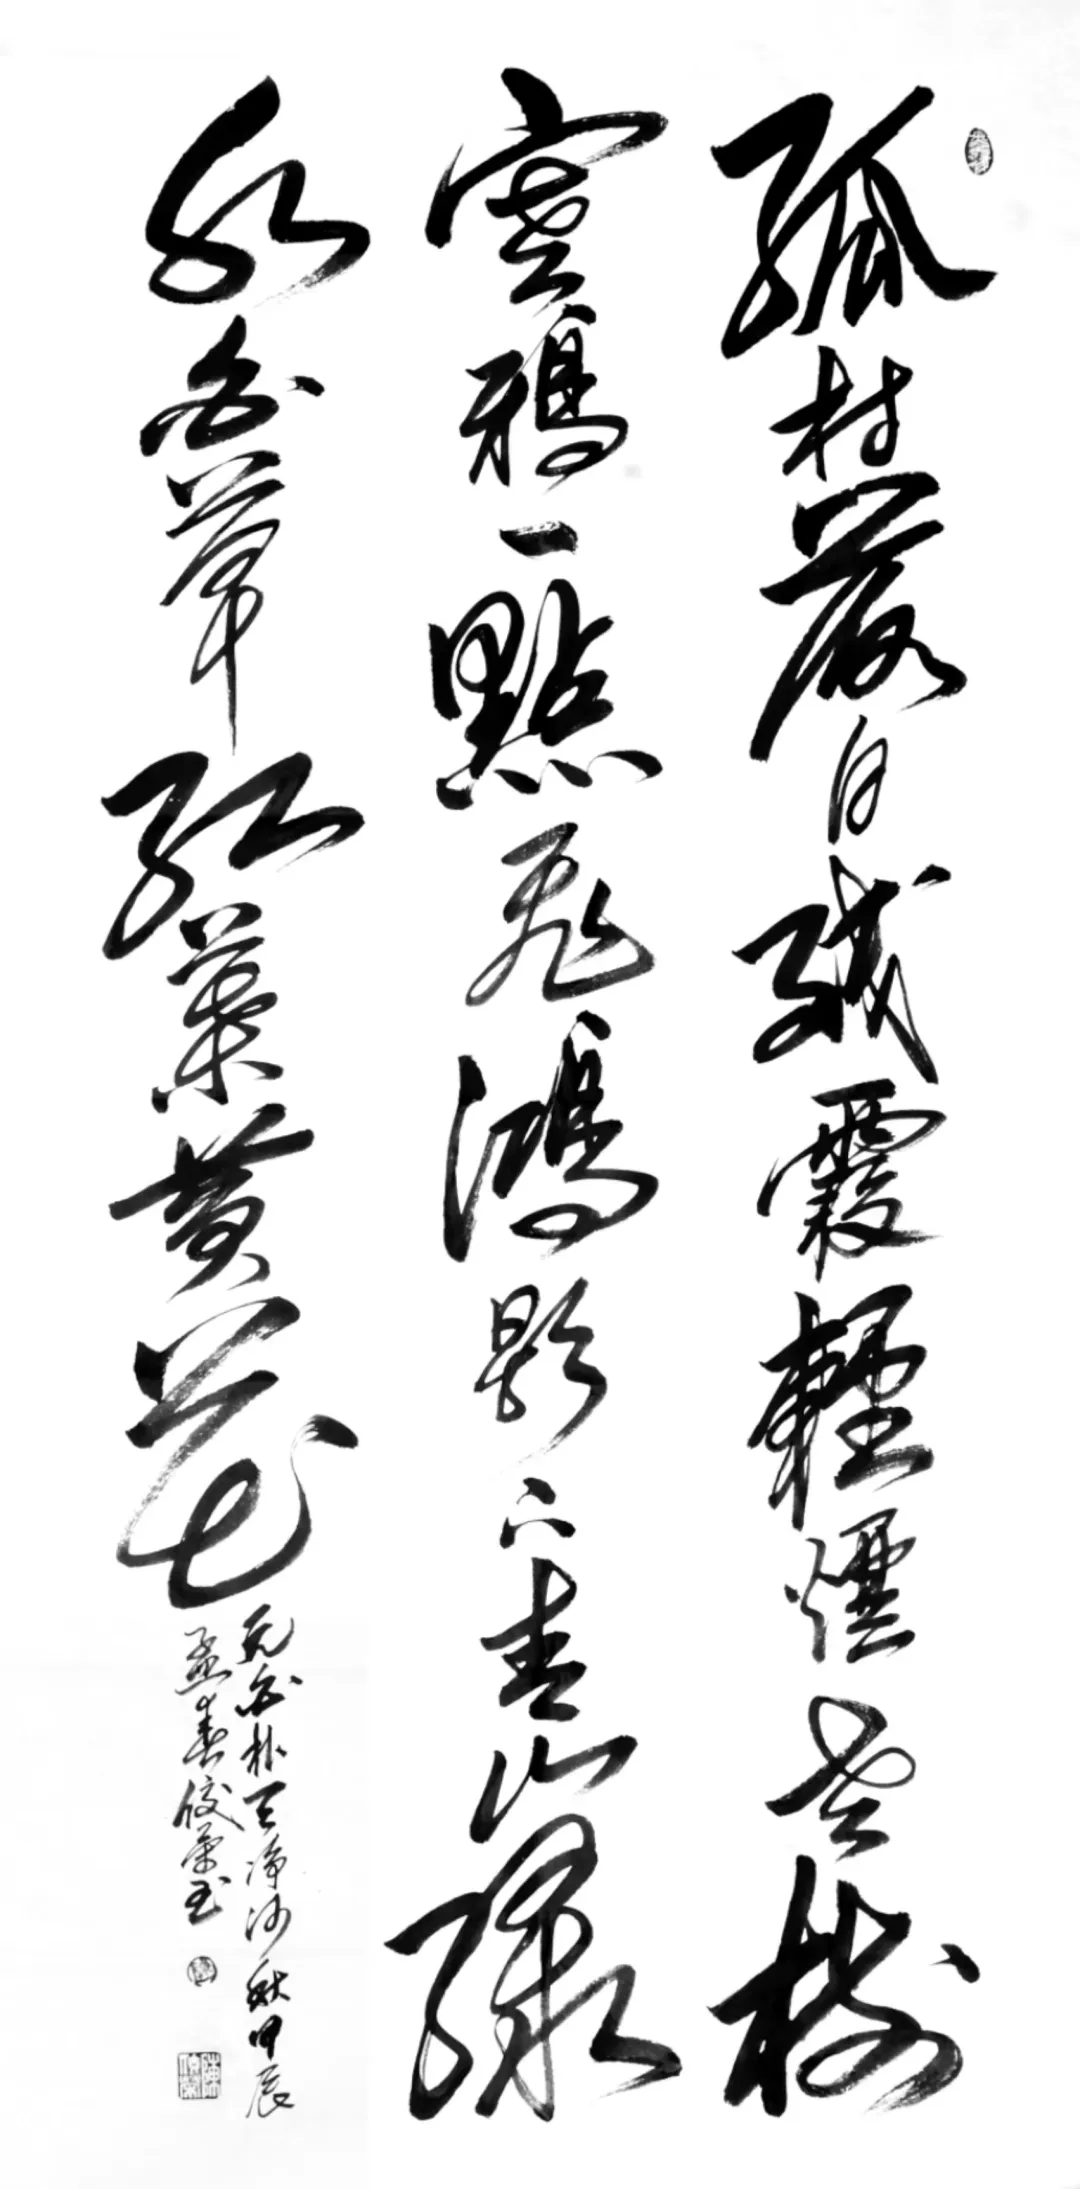 孤村落日殘霞輕煙老樹
寒鴉一點飛鴻影下青山綠
水白草紅葉黃花
元白朴天淨沙秋甲辰
孟春俊榮書